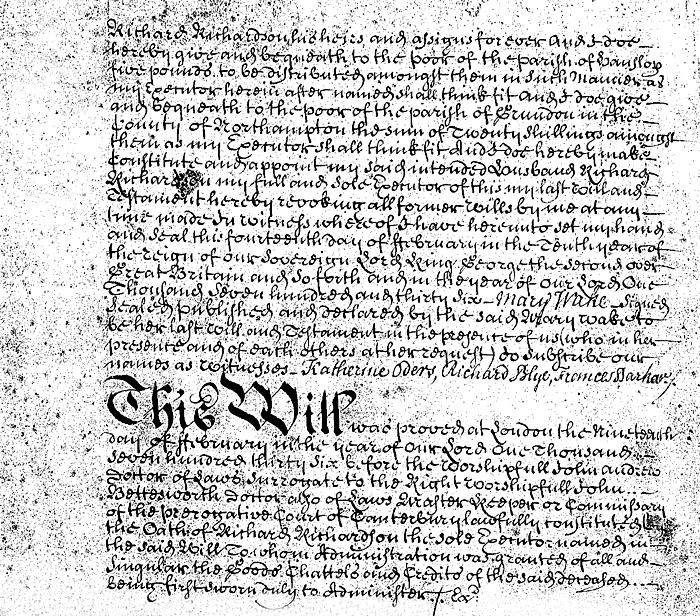 Richard Richardson his heirs and assigns for ever And I doe
hereby give and bequeath to the poor of the parish of Hanslop
five pounds to be distributed amongst them in such Manner as
my Executor herein after named shall think fit And I doe give
and bequeath to the poor of the parish of in the
County of Northampton the sum of Twenty shillings amongst
them as my Executor shall think fit And I doe hereby make
Constitute and appoint my said intended Husband Richard
Richardson my full and sole Executor of this my last Will and
Testament hereby revoking all former Wills by me at any
time made In Witness whereof I have hereunto set my hand
and seal this fourteenth day of ffebruary in the Tenth year of
the reign of our Sovereign Lord King George the second over
Great Britain and so forth and in the year of our Lord One
Thousand seven hundred and thirty six - Mary Wake - signed
sealed published and declared by the said Mary Wake to
be her last Will and Testament in the presence of us (who in her
presence and of each others at her request) do subscribe our
names as Witnesses - Katherine Oders, Richard Blye, Frances Barkar,
This Will was proved at London the Nineteenth
day of ffebruary in the year of our Lord One Thousand
seven hundred thirty six before the Worshipfull John Andrew
Doctor of Laws Surrogate to the Right Worshipfull John
Bettesworth Doctor also of Laws Master Keeper or Commissary
of the prerogative Court of Canterbury lawfully constituted by
the Oath of Richard Richardson the sole Executor named in
the said Will To whom Administration was granted of all and
singular the Goods Chattels and Credits of the said deceased
being first sworn duly to Administer /. Exd